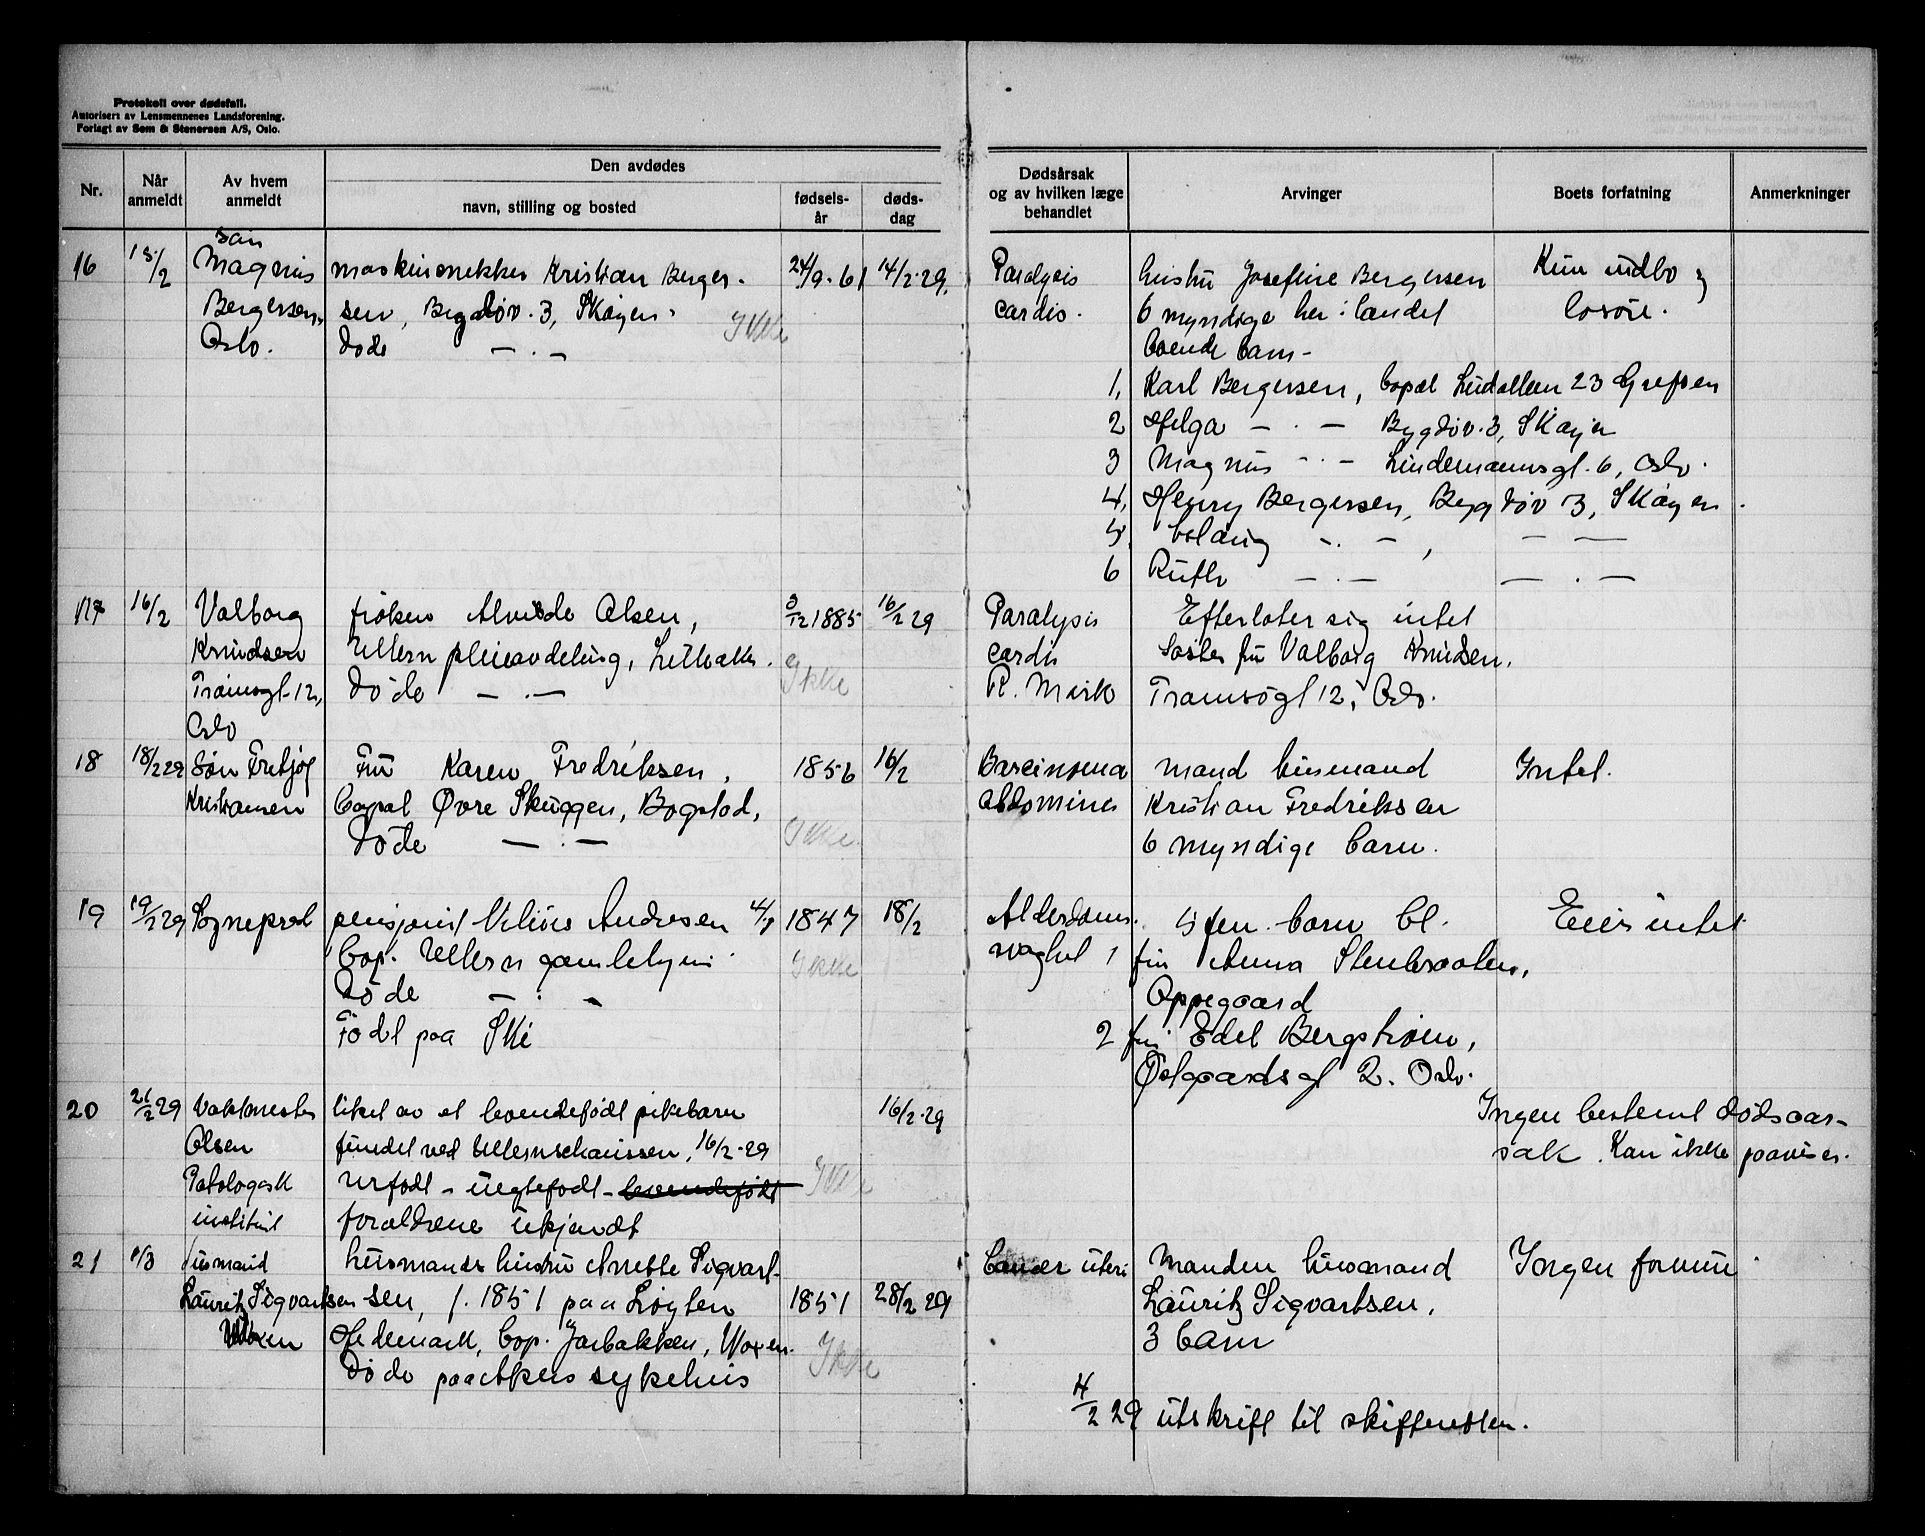 Protokoll over dødsfall.
Autorisert av Lensmennenes Landsforening.
Forlagt av Sem & Stenersen A/S, Oslo.
Nr.
Når anmeldt
Av hvem anmeldt
Den avdødes
navn, stilling og bosted
fødsels-år
døds-dag
Dødsårsak og av hvilken læge behandlet
Arvinger
Boets forfatning
Anmerkninger
16
15/2
søn
Magnus
Bergersen,
Oslo.
maskinsnekker Kristian Berger-
sen, Bygdøv. 3, Skøyen.
døde — . —
Ikke
24/9-61
14/2-29.
Paralysis
cardis.
hustru Josefine Bergersen
6 myndige her i landet
boende barn-
1, Karl Bergersen, bopæl Lindalleen 23 Grefsen
2 Helga — . — Bygdøv. 3, Skøyen
3 Magnus — . — Lindemannsgt. 6, Oslo.
4, Henry Bergersen, Bygdøv 3, Skøyen.
5, — . — , — —
6 Ruth — . — — . —
Kun indbo og
løsøre.
17
16/2
Valborg
Knudsen
Tromsøgt. 12,
Oslo
frøken Alvilde Olsen,
Ullern pleieavdeling, Lilleaker.
døde — . —
Ikke
3/12 1885
16/2 29
Paralysis
cardis
R. Mork
Efterlater sig intet
Søster fru Valborg Knudsen,
Tromsøgt 12, Oslo.
18
18/2 29
Søn Fritjof
Kristiansen
Fru Karen Fredriksen,
bopæl Øvre Skuggen, Bogstad,
døde — . —
Ikke
1856
16/2
Barcinoma
abdomines
mand husmand
Kristian Fredriksen
6 myndige barn.
Intet.
19
19/2 29
Sogneprest
pensjonist Andresen 4/7
bop. Ullern gamlehjem
døde — . —
Født paa Ski
Ikke
1847
18/2
Alderdoms-
svaghet
5 barn bl.
1 fru Anna Stenbraaten,
Oppegaard
2 fru Edel Bergstrøm,
Østgaardsgt 2. Oslo.
Eier intet
20
21/2 29
Vaktmester
Olsen
Patologisk
institut
liket av et levendefødt pikebarn
fundet ved Ullernschausseen, 16/2-29
nyfødt - uegtefødt - levendefødt
forældrene ukjendt
Ikke
16/2-29
Ingen bestemt dødsaar-
sak. Kan ikke paavises.
21
1/3
husmand
Lauritz Sigvartsen
Woxen
husmands hustru Anette Sigvart-
sen, f. 1851 paa Løyten
Hedemark, bop. Jarbakken, Woxen.
Døde paa Akers sykehus
Ikke
1851
28/2 29
Cancer uteri
Manden husmand
Lauritz Sigvartsen,
3 barn
Ingen formue
4/2 29 utskrift til skifteretten.